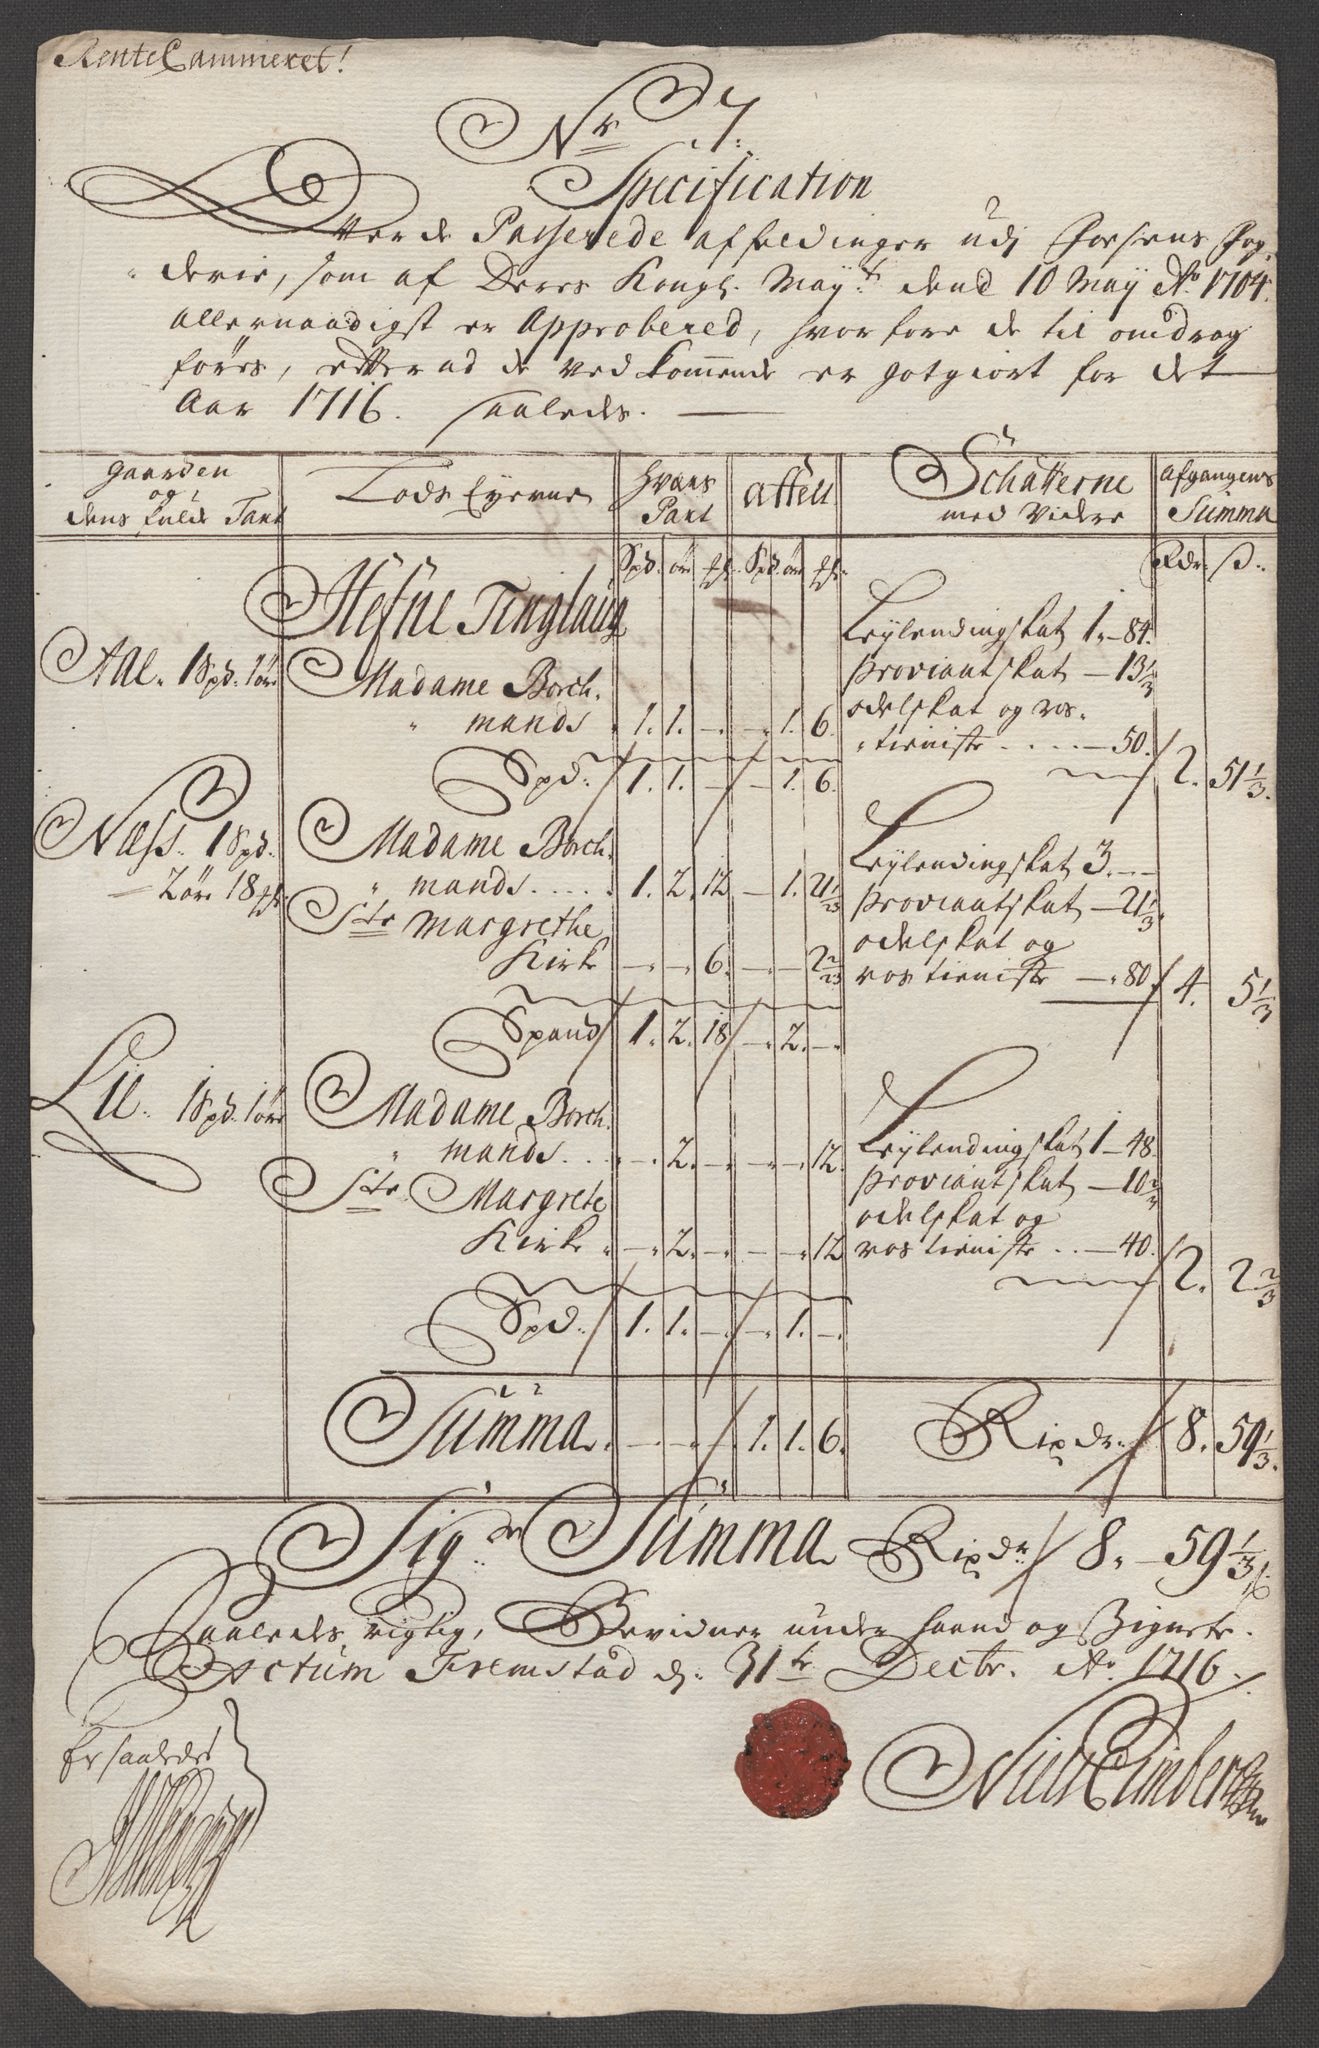 RenteCammeret!
No 7.
Specification
Over de Passerede affældinger udj Fosens Fog-
derie, som af Deres Kongl. Mayt. dend 10 May Ao. 1704.
allernaadigst er Approbered, hvorfore de til omdrag
føres, efter at de vedkommende er gotgiort for det
Aar 1716. saaledes.
Gaarden og dens fulde Taxt | Lods Eyerne | Hværs Part | affelt | Schatterne med Videre | Afgangens Summa
Spd. øre ƒkr. Spd. øre ƒkr. Rdr. ß.
Hefne Tinglaug
Aal. 1 Spd. 1 øre
Madame Borch-
mands 1. 1. - - 1. 6.
Leylendingskat 1 - 84.
Proviantskat - 13 1/3
odelskat og ros-
tieniste - 50. 2. 51 1/3.
Spd. 1. 1. - - 1. 6.
Næss. 1 Spd.
2 øre 18
Madame Borch-
mands 1. 2. 12 - 1. 21 21/23
Leylendingskat 3. -
Proviantskat - 21 1/3
Ste Margrethe
Kirke - - 6. - - 2 2/23
odelskat og
rostieniste - 80. 4. 5 1/3
Spand 1. 2. 18 - 2. -
Lie. 1 Spd. 1 øre
Madame Borch-
mands - 2. - - - 12.
Leylendingskat 1 - 48.
Proviantskat - 10 2/3
Ste. Margrete
Kirke - 2. - - - 12
odelskat og
rostieniste - 40. 2. 2 2/3
Spd. 1. 1. - - 1. -
Summa - - - 1. 1. 6. Rixdr. 8. 59 1/3.
Sig.r Summa Rixdr 8. - 59 1/3 ß.
Saaledes rigtig, Bevidner under haand og Zignete.
Actum Fremstad d. 31te Decbr. Ao. 1716.
Er saaledes